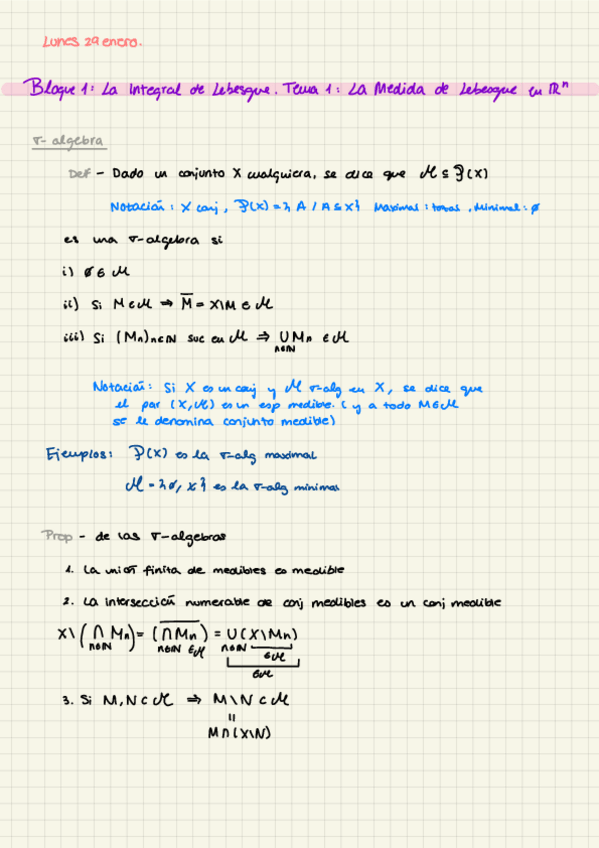 Lunes 29 enero.
Bloque 1: La Integral de Lebesgue. Tema 1: La Medida de Lebesgue en ℝⁿ
σ-algebra
Def - Dado un conjunto X cualquiera, se dice que ℳ ⊆ 𝒫(X)
Notación: X conj, 𝒫(X) = { A / A ⊆ X } Maximal: todas, Minimal: ∅
es una σ-algebra si
i) ∅ ∈ ℳ
ii) Si M ∈ ℳ ⇒ M̅ = X\M ∈ ℳ
iii) Si (Mn)n∈ℕ suc en ℳ ⇒ ∪ Mn ∈ ℳ
n∈ℕ
Notación: Si X es un conj y ℳ σ-alg en X, se dice que
el par (X,ℳ) es un esp medible. (y a todo M∈ℳ
se le denomina conjunto medible)
Ejemplos: 𝒫(X) es la σ-alg maximal
ℳ = {∅, X} es la σ-alg minimal
Prop - de las σ-algebras
1. La unión finita de medibles es medible
2. La intersección numerable de conj medibles es un conj medible
X\(∩ Mn) = (∩ Mn)‾ = ∪ (X\Mn)
n∈ℕ n∈ℕ ∈ℳ n∈ℕ ∈ℳ
∈ℳ
3. Si M, N ⊂ ℳ ⇒ M\N ⊂ ℳ
=
M∩(X\N)